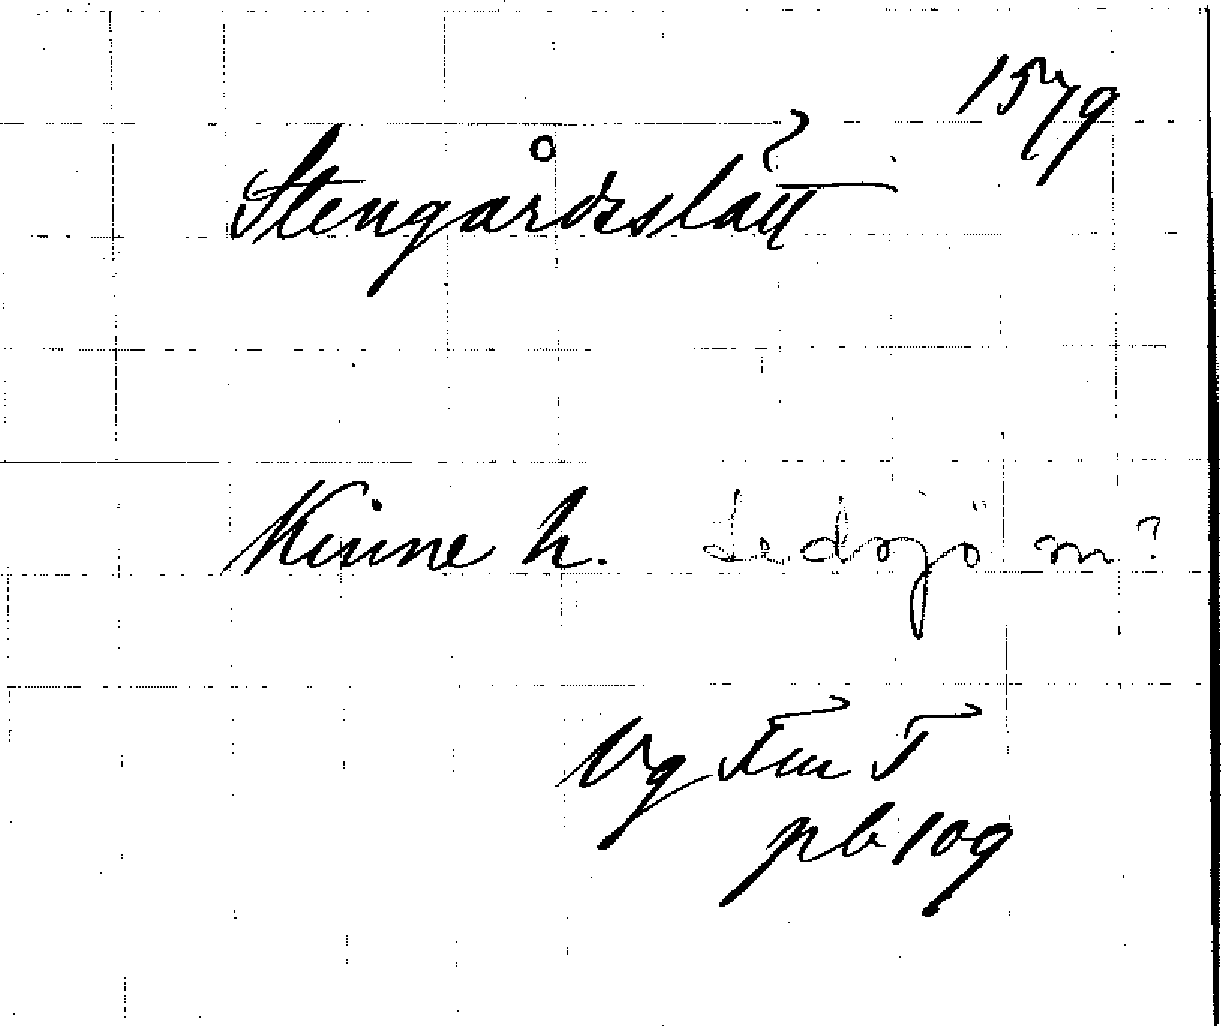 1579
Stengårdsslätt
Kinne h. Ledsjö sn?
Vg Fm T
pb 109